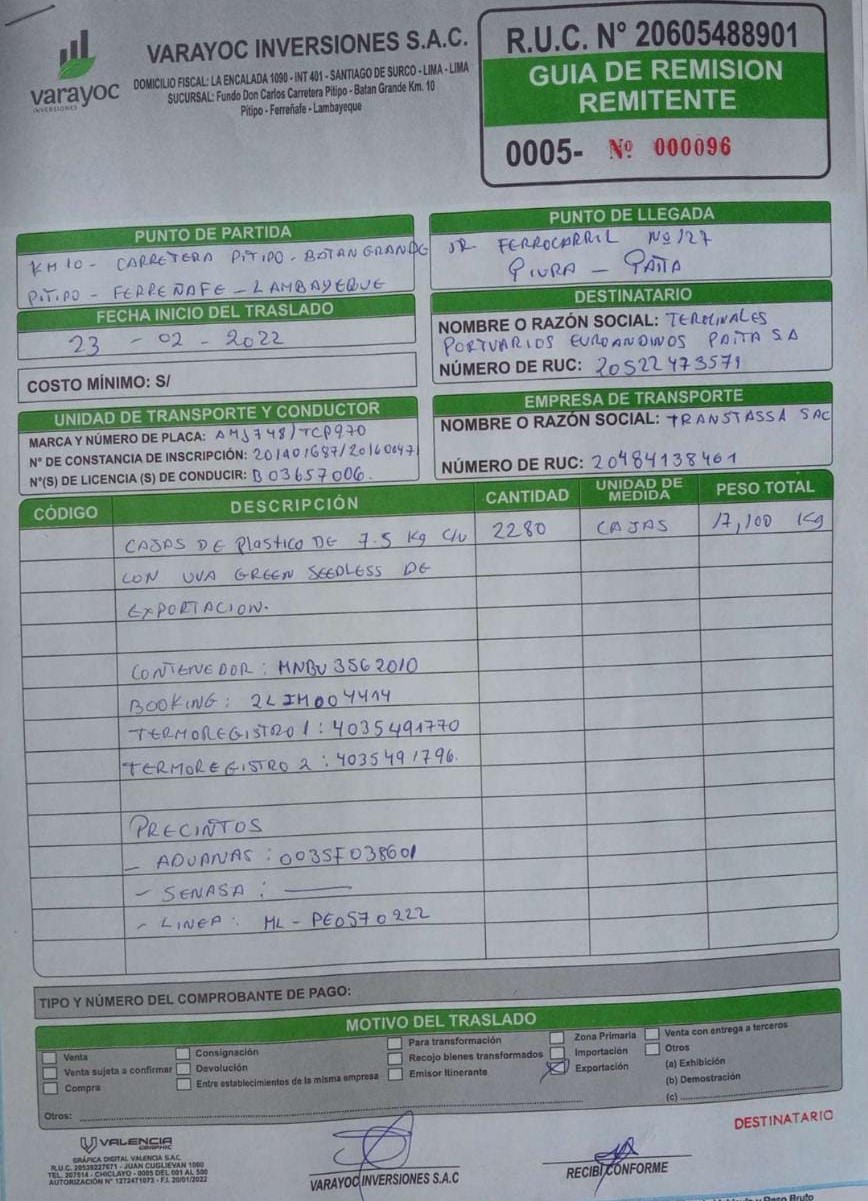 varayoc
INVERSIONES
VARAYOC INVERSIONES S.A.C.
DOMICILIO FISCAL: LA ENCALADA 1090 - INT 401 - SANTIAGO DE SURCO - LIMA - LIMA
SUCURSAL: Fundo Don Carlos Carretera Pitipo - Batan Grande Km. 10
Pitipo - Ferreñafe - Lambayeque
R.U.C. N° 20605488901
GUIA DE REMISION
REMITENTE
0005- Nº 000096
PUNTO DE PARTIDA
KM 10 - CARRETERA PITIPO - BATAN GRANDE
PITIPO - FERREÑAFE - LAMBAYEQUE
PUNTO DE LLEGADA
JR FERROCARRIL Nº 127
PIURA - PAITA
FECHA INICIO DEL TRASLADO
23 - 02 - 2022
COSTO MÍNIMO: S/
DESTINATARIO
NOMBRE O RAZÓN SOCIAL: TERMINALES
PORTUARIOS EUROANDINOS PAITA SA
NÚMERO DE RUC: 20522473571
UNIDAD DE TRANSPORTE Y CONDUCTOR
MARCA Y NÚMERO DE PLACA: AMJ748/TCP970
N° DE CONSTANCIA DE INSCRIPCIÓN: 201401687/20160047
N°(S) DE LICENCIA (S) DE CONDUCIR: B03657006.
EMPRESA DE TRANSPORTE
NOMBRE O RAZÓN SOCIAL: TRANSTASSA SAC
NÚMERO DE RUC: 20484138461
CÓDIGO DESCRIPCIÓN CANTIDAD UNIDAD DE MEDIDA PESO TOTAL
CAJAS DE Plastico DE 7.5 Kg C/U 2280 CAJAS 17,100 Kg
CON UVA GREEN SEEDLESS DE
EXPORTACION.
CONTENEDOR: MNBU 3562010
BOOKING: 2LIM004414
TERMOREGISTRO 1: 4035491770
TERMOREGISTRO 2: 4035491796.
PRECINTOS
- ADUANAS: 0035F038601
- SENASA: ———
- LINEA: ML - PE0570222
TIPO Y NÚMERO DEL COMPROBANTE DE PAGO:
MOTIVO DEL TRASLADO
Venta Consignación Para transformación Zona Primaria Venta con entrega a terceros
Venta sujeta a confirmar Devolución Recojo bienes transformados Importación Otros
Compra Entre establecimientos de la misma empresa Emisor Itinerante Exportación (a) Exhibición
(b) Demostración
Otros: (c)
DESTINATARIO
VALENCIA
GRÁFICA DIGITAL VALENCIA S.A.C.
R.U.C. 20539227671 - JUAN CUGLIEVAN 1060
TEL. 207514 - CHICLAYO - 0005 DEL 001 AL 500
AUTORIZACIÓN N° 1272471073 - F.I. 20/01/2022
VARAYOC INVERSIONES S.A.C
RECIBÍ CONFORME
Peso Bruto